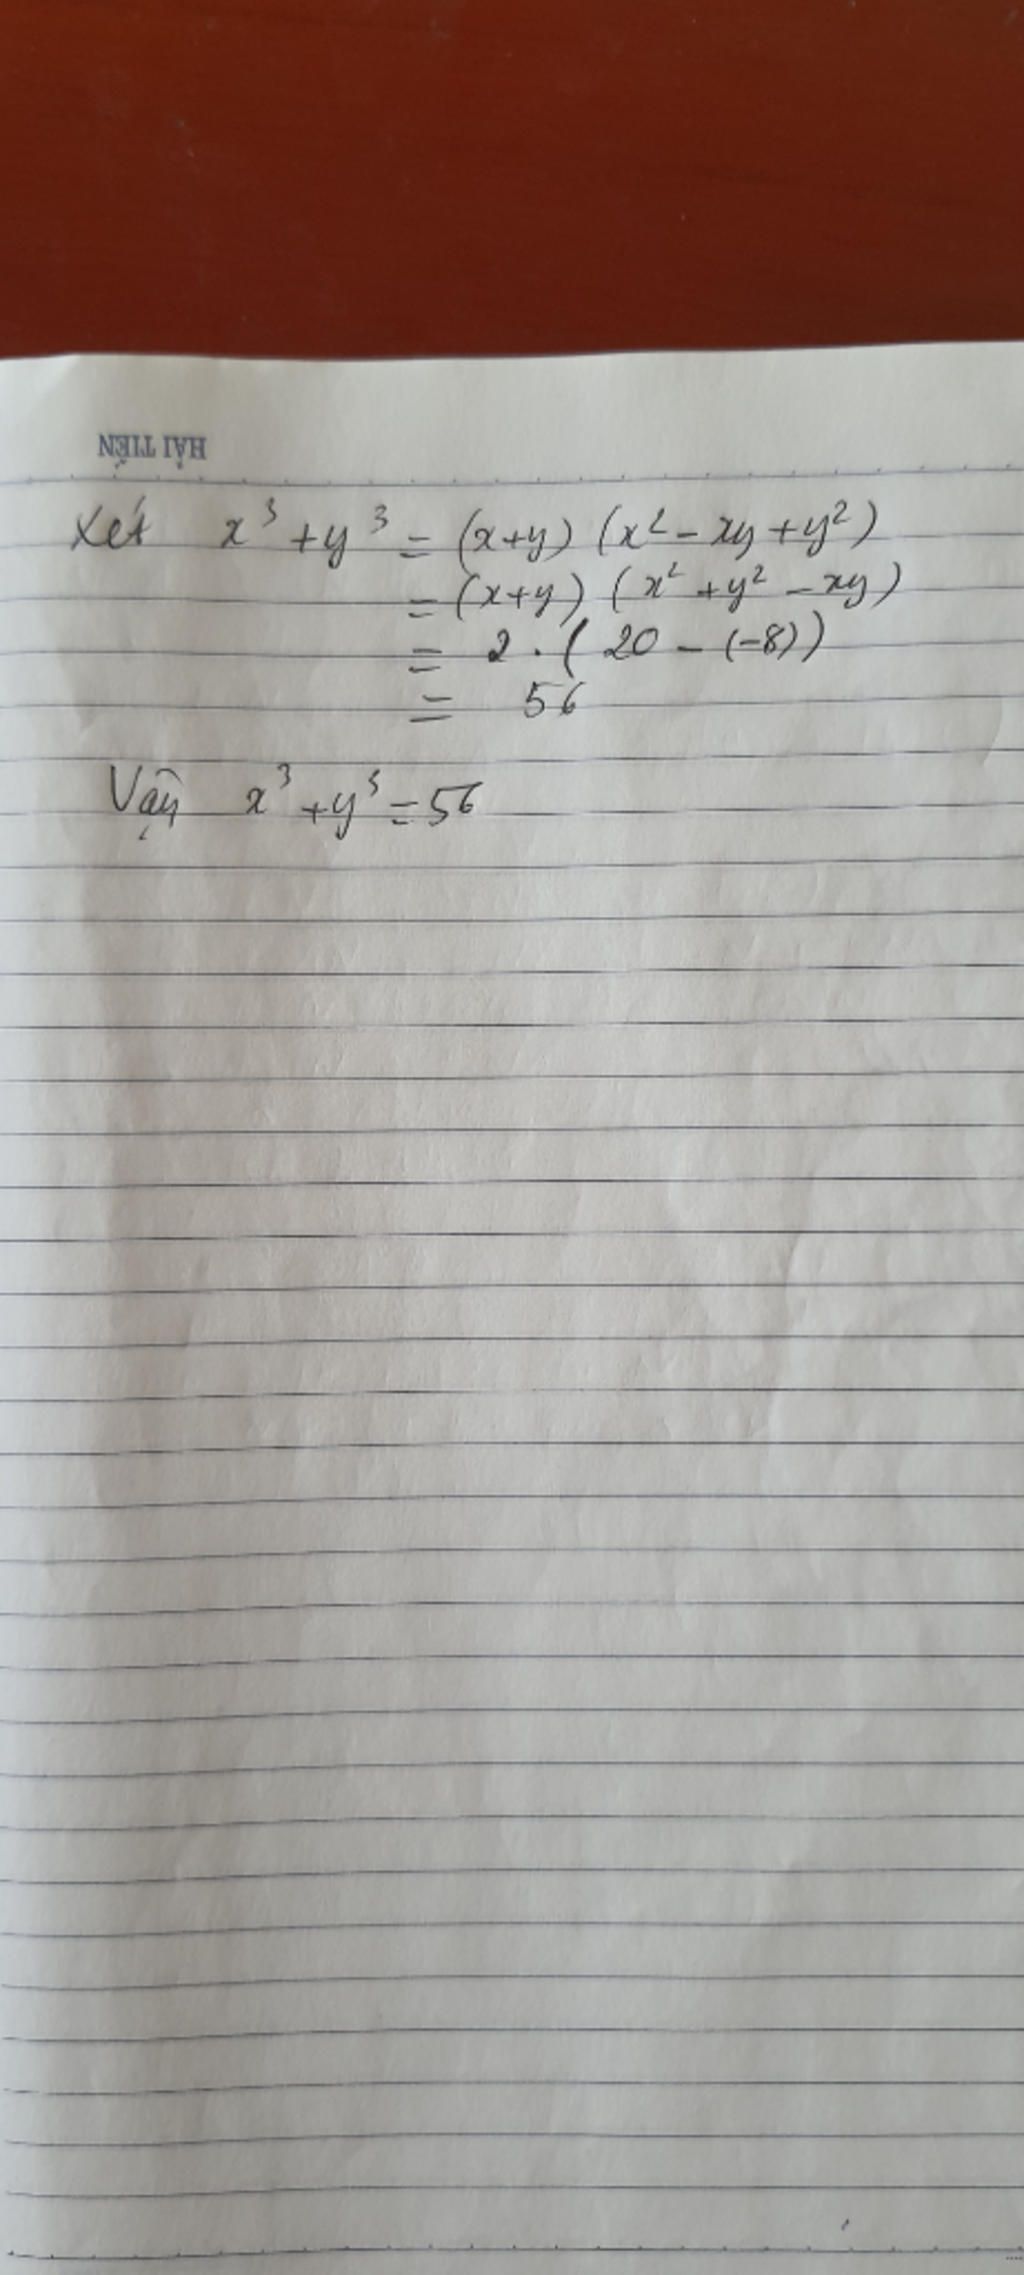 HẢI TIẾN
Xét x³ + y³ = (x+y) (x² - xy + y²)
= (x+y) (x² + y² - xy)
= 2 . ( 20 - (-8))
= 56
Vậy x³ + y³ = 56